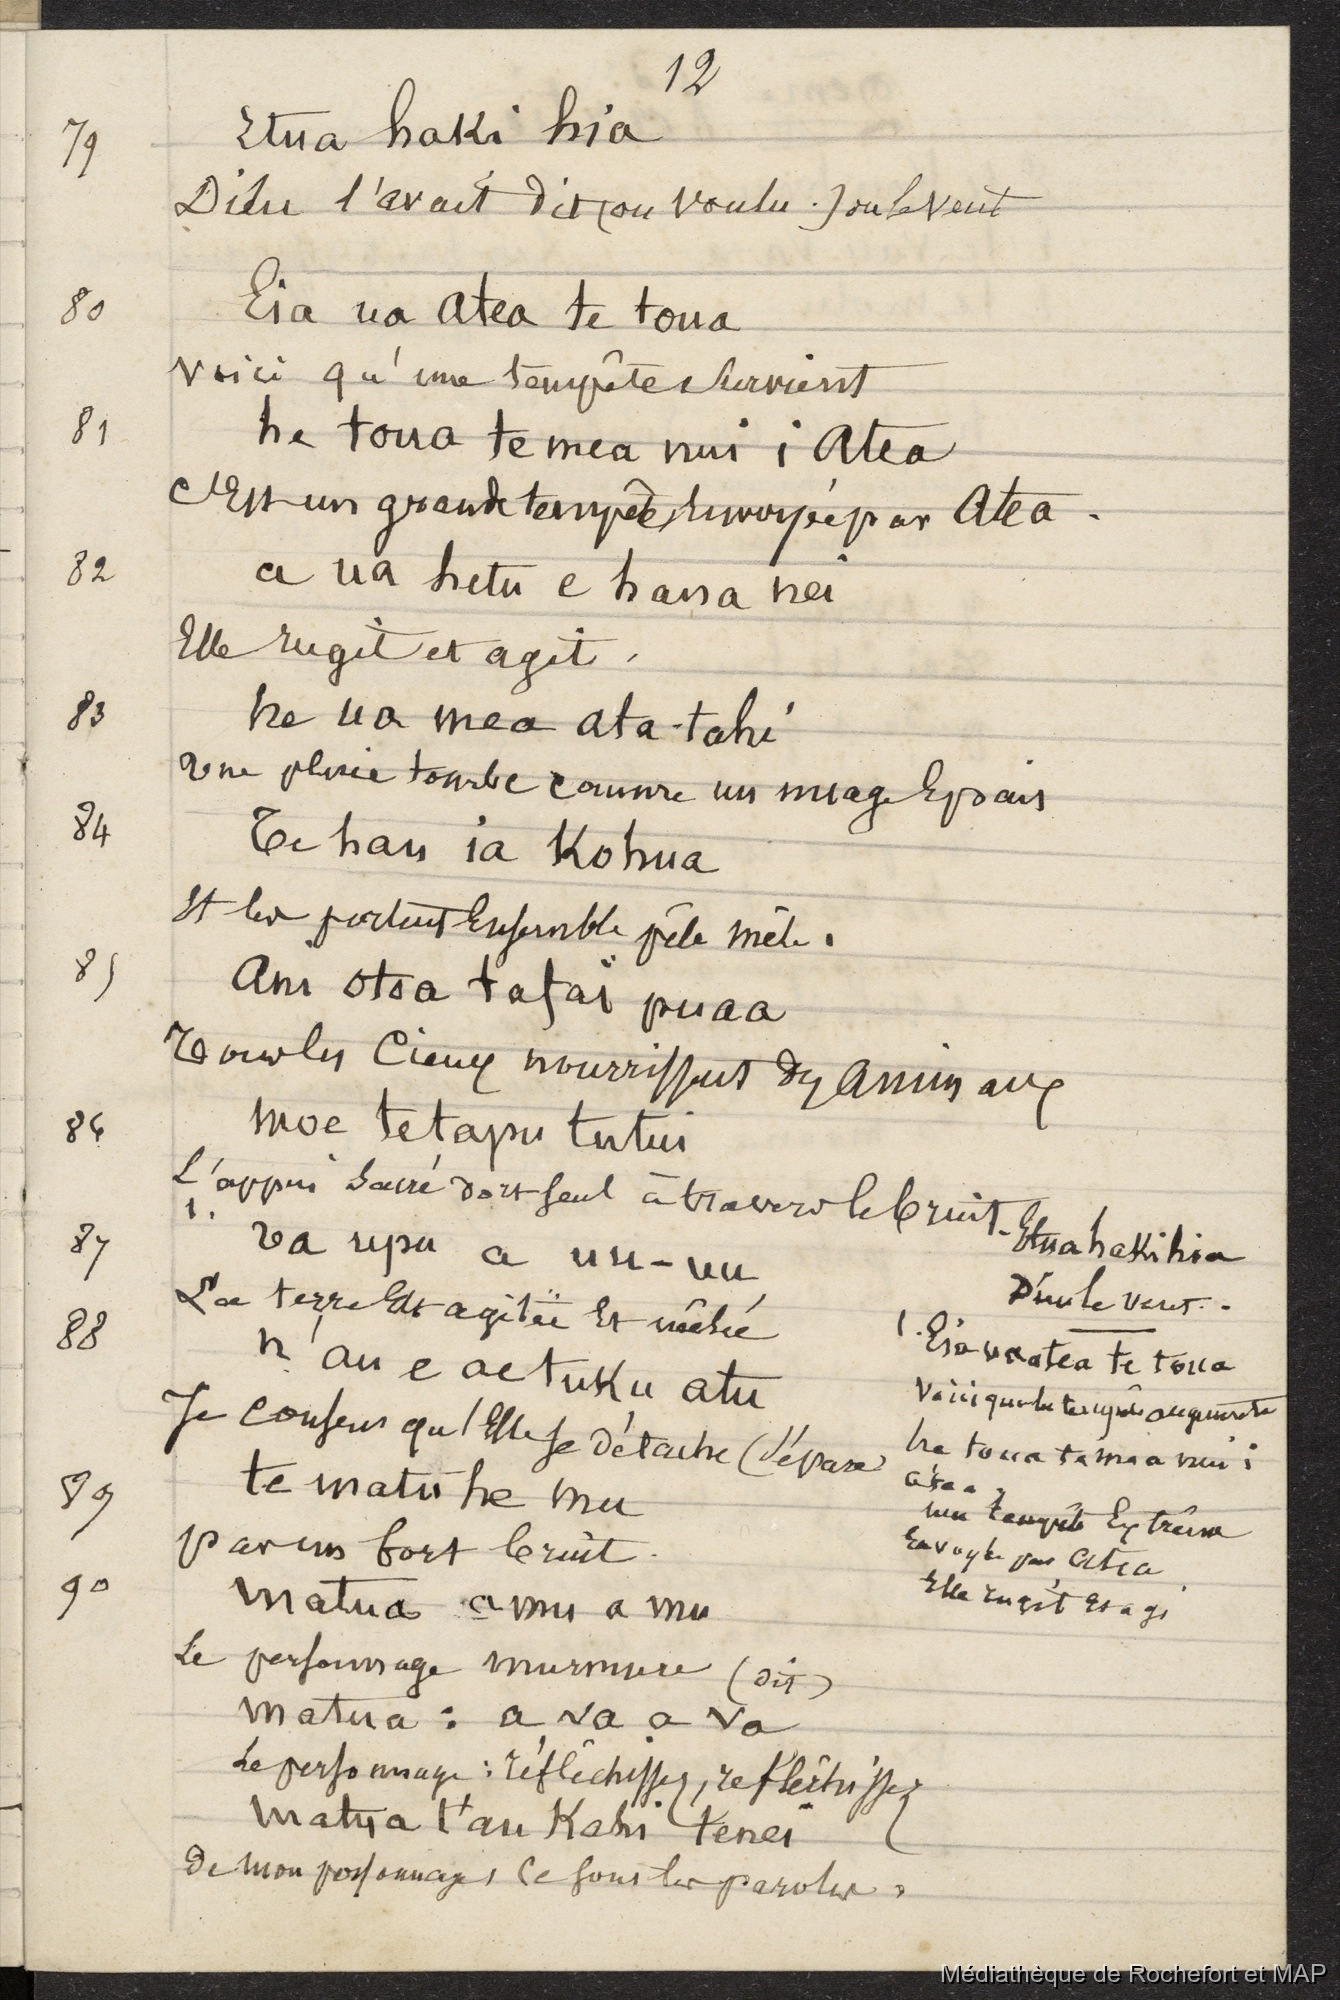 12
79 Etua haki hia
Dieu l'avait dit (ou voulu.) ou le veut
80 Eia ua Atea te toua
Voici qu'une tempête survient
81 he toua te mea nui i Atea
c'Est un grande tempête, Envoyée par Atea.
82 a ua hetu e hana nei
Elle rugit et agit,
83 he ua mea ata-tahi
Une pluie tombe comme un nuage Epais
84 Te hau ia Kohua
Et les portent Ensemble pêle mêle.
85 Ani otoa tafai puaa
Tous les Cieux nourrissent des Animaux
86 moe te tapu tutui
L'appui Sacré dort seul à travers le bruit.
1.
87 Va upu a uu-uu
La terre Est agitée Et mêlée
88 n'au e ae tuku atu
Je consens qu'Elle se détache (sépare
89 te matu he mu
par un fort bruit.
90 matua a mu a mu
Le personnage murmure (dit)
matua : a va a va
Le personnage : réfléchissez, refléchissez
matua t'au Kahi tenei
De mon personnage, Ce sont les paroles,
Etua haki hia
Dieu le veut.
1. Eia ua atea te toua
Voici que la tempête augmente
he toua te mea nui i
atea,
une tempête Extrême
Envoyée par Atea
Elle rugit Et agi
Médiathèque de Rochefort et MAP